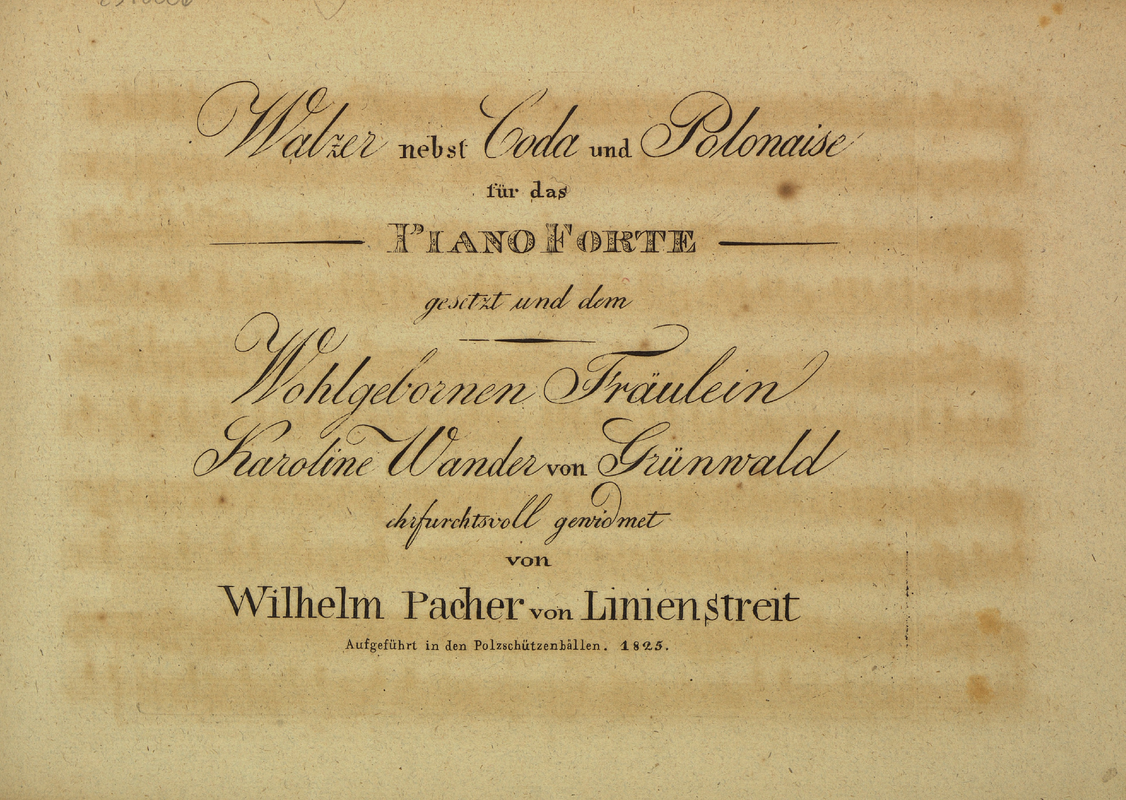 Walzer nebst Coda und Polonaise
für das
PIANO FORTE
gesetzt und dem
Wohlgebornen Fräulein
Karoline Wander von Grünwald
ehrfurchtsvoll gewidmet
von
Wilhelm Pacher von Linienstreit
Aufgeführt in den Polzschützenbällen. 1825.